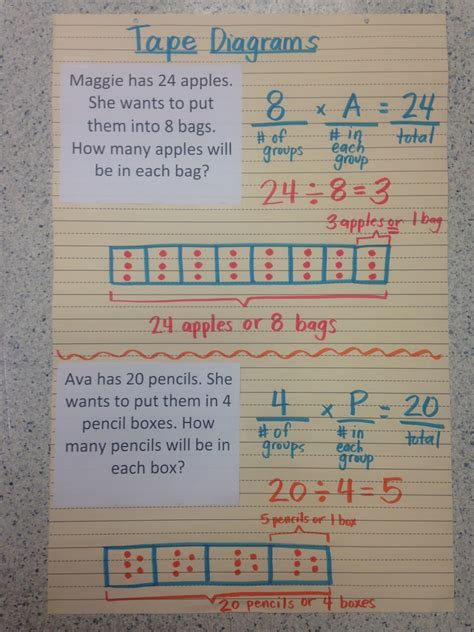 Tape Diagrams
Maggie has 24 apples.
She wants to put
them into 8 bags.
How many apples will
be in each bag?
8 x A = 24
# of groups # in each group total
24 ÷ 8 = 3
3 apples or 1 bag
24 apples or 8 bags
Ava has 20 pencils. She
wants to put them in 4
pencil boxes. How
many pencils will be in
each box?
4 x P = 20
# of groups # in each group total
20 ÷ 4 = 5
5 pencils or 1 box
20 pencils or 4 boxes